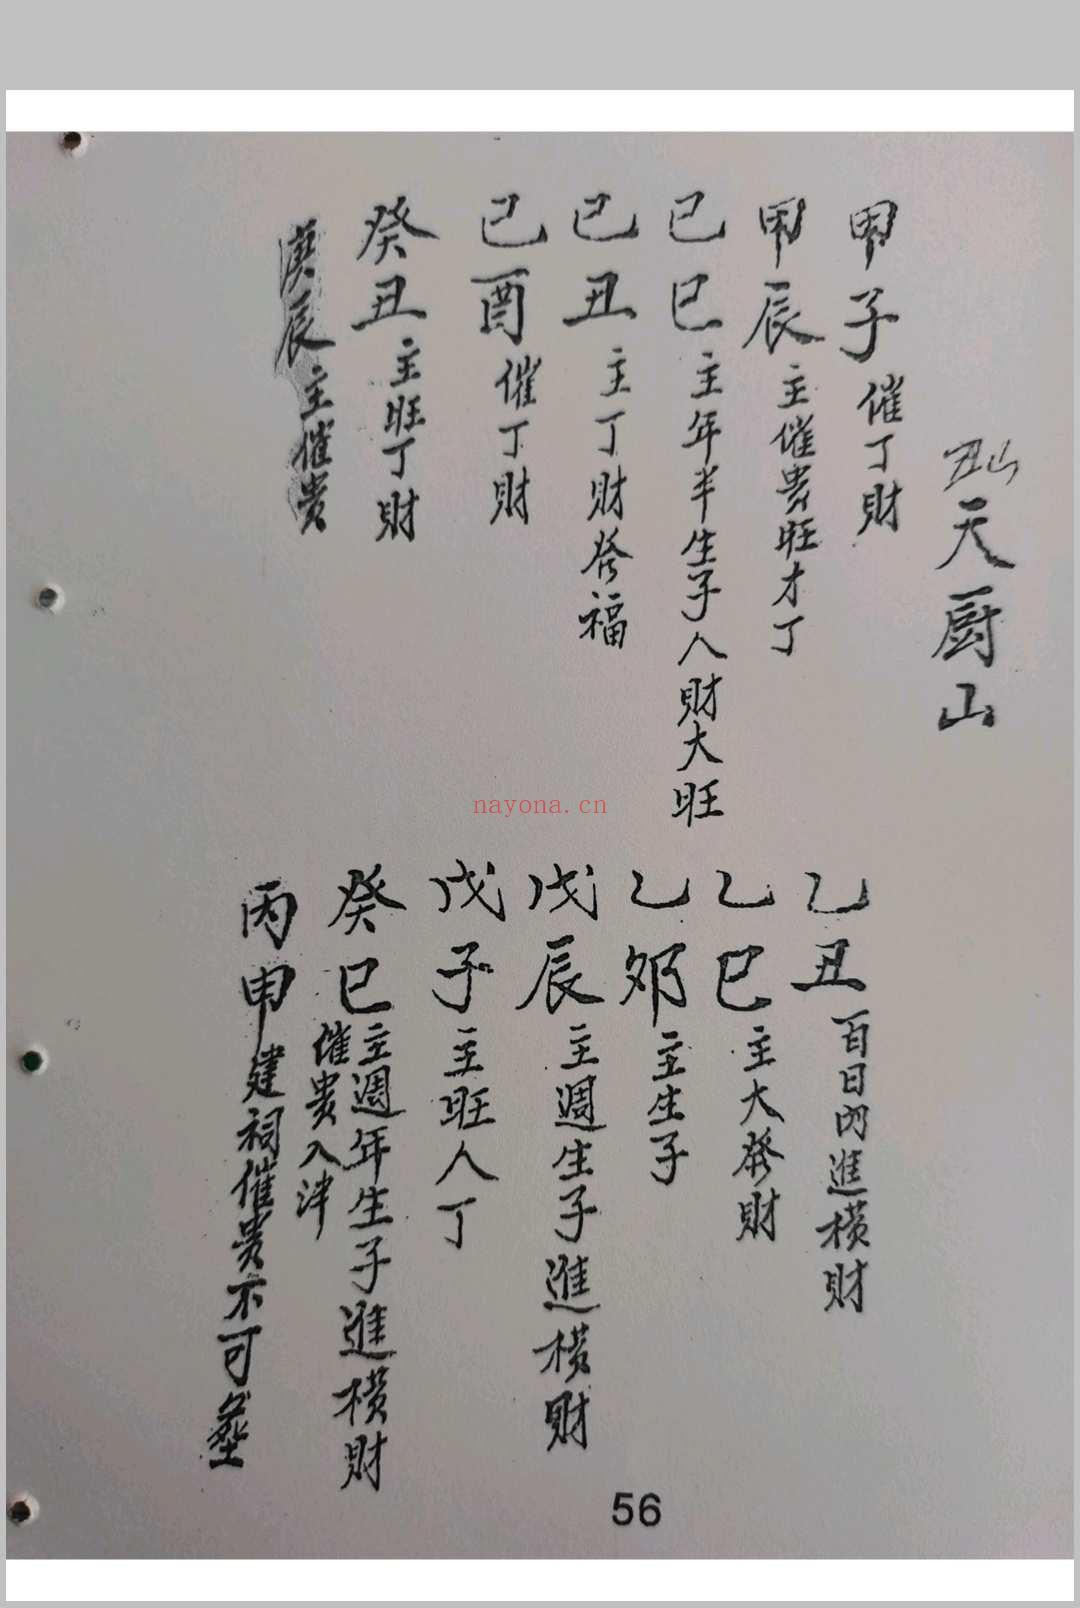 丑山
天厨山
甲子催丁財
甲辰主催貴旺才丁
己巳主年半生子人財大旺
己丑主丁財發福
己酉催丁財
癸丑主旺丁財
庚辰主催貴
乙丑百日內進横財
乙巳主大發財
乙夘主生子
戊辰主週生子進横財
戊子主旺人丁
癸巳主週年生子進横財
催貴入泮
丙申建祠催貴不可塟
nayona.cn
56